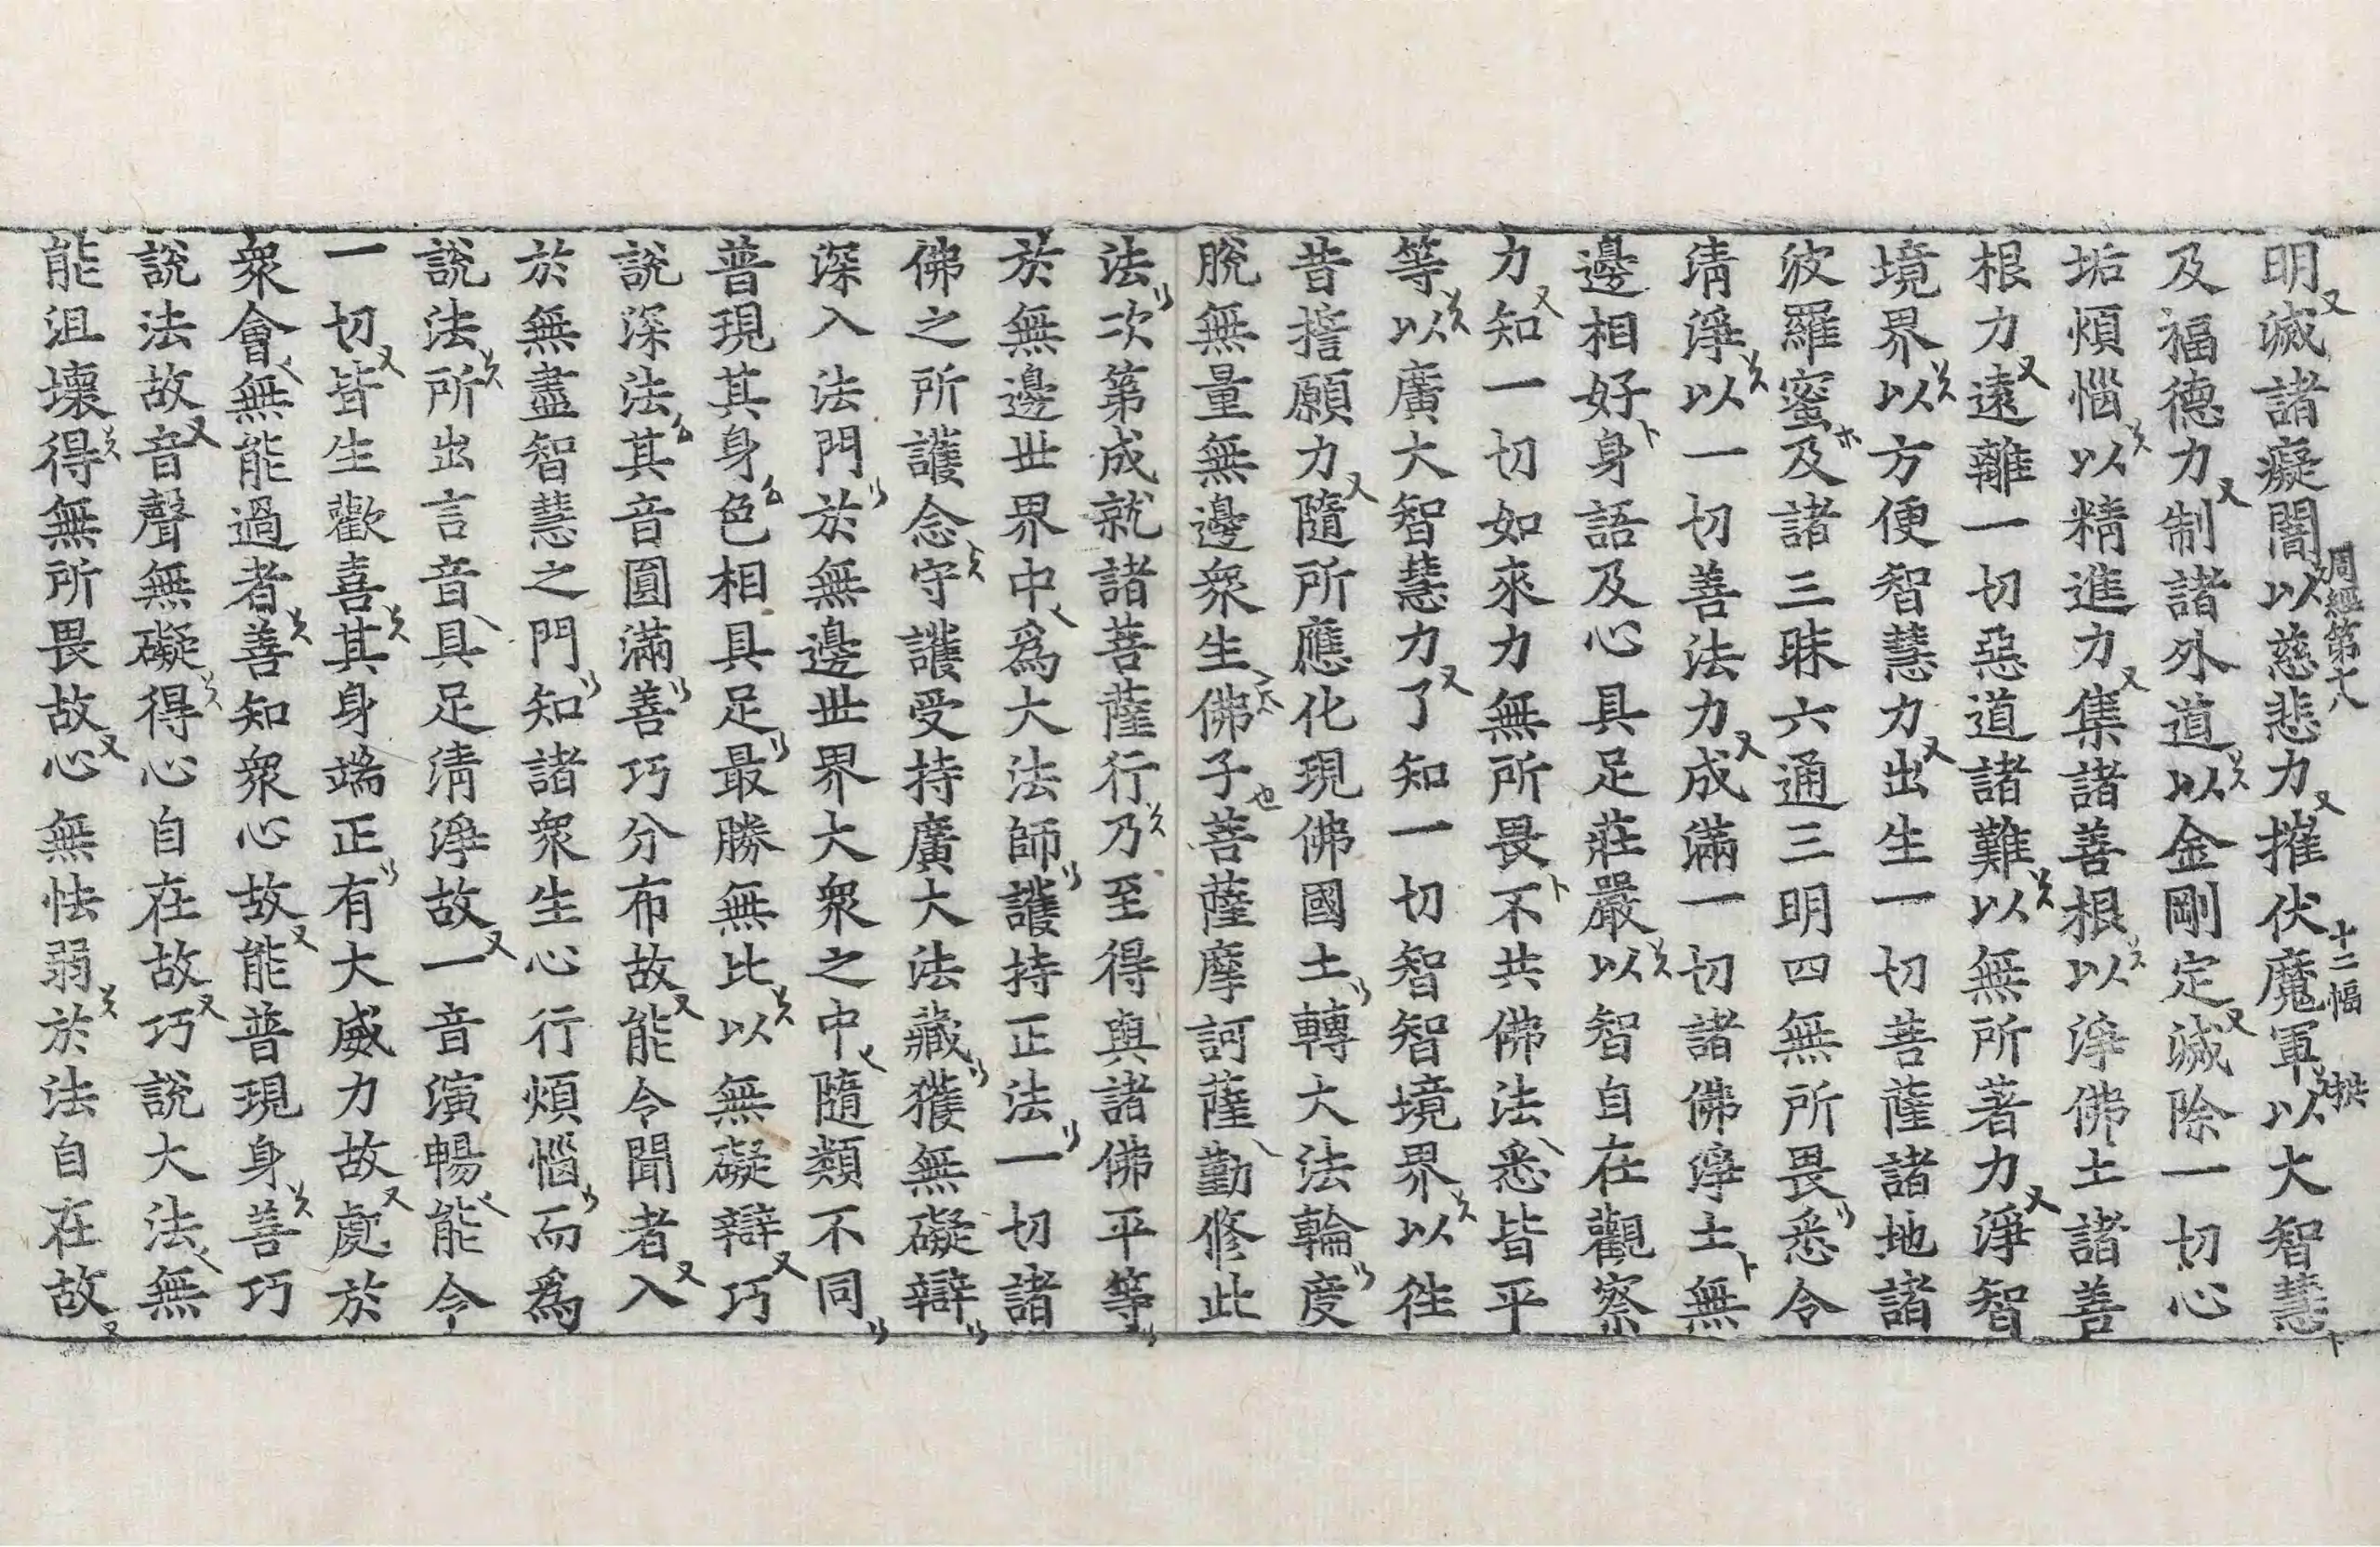 明滅諸癡闇以慈悲力摧伏魔軍以大智慧
周經第十八 十二幅
及福德力制諸外道以金剛定滅除一切心
垢煩惱以精進力集諸善根以淨佛土諸善
根力遠離一切惡道諸難以無所著力淨智
境界以方便智慧力出生一切菩薩諸地諸
波羅蜜及諸三昧六通三明四無所畏悉令
清淨以一切善法力成滿一切諸佛淨土無
邊相好身語及心具足莊嚴以智自在觀察
力知一切如來力無所畏不共佛法悉皆平
等以廣大智慧力了知一切智智境界以往
昔誓願力隨所應化現佛國土轉大法輪度
脫無量無邊衆生佛子菩薩摩訶薩勤修此
法次第成就諸菩薩行乃至得與諸佛平等
於無邊世界中爲大法師護持正法一切諸
佛之所護念守護受持廣大法藏獲無礙辯
深入法門於無邊世界大衆之中隨類不同
普現其身色相具足最勝無比以無礙辯巧
說深法其音圓滿善巧分布故能令聞者入
於無盡智慧之門知諸衆生心行煩惱而爲
說法所出言音具足清淨故一音演暢能令
一切皆生歡喜其身端正有大威力故處於
衆會無能過者善知衆心故能普現身善巧
說法故音聲無礙得心自在故巧說大法無
能沮壞得無所畏故心無怯弱於法自在故